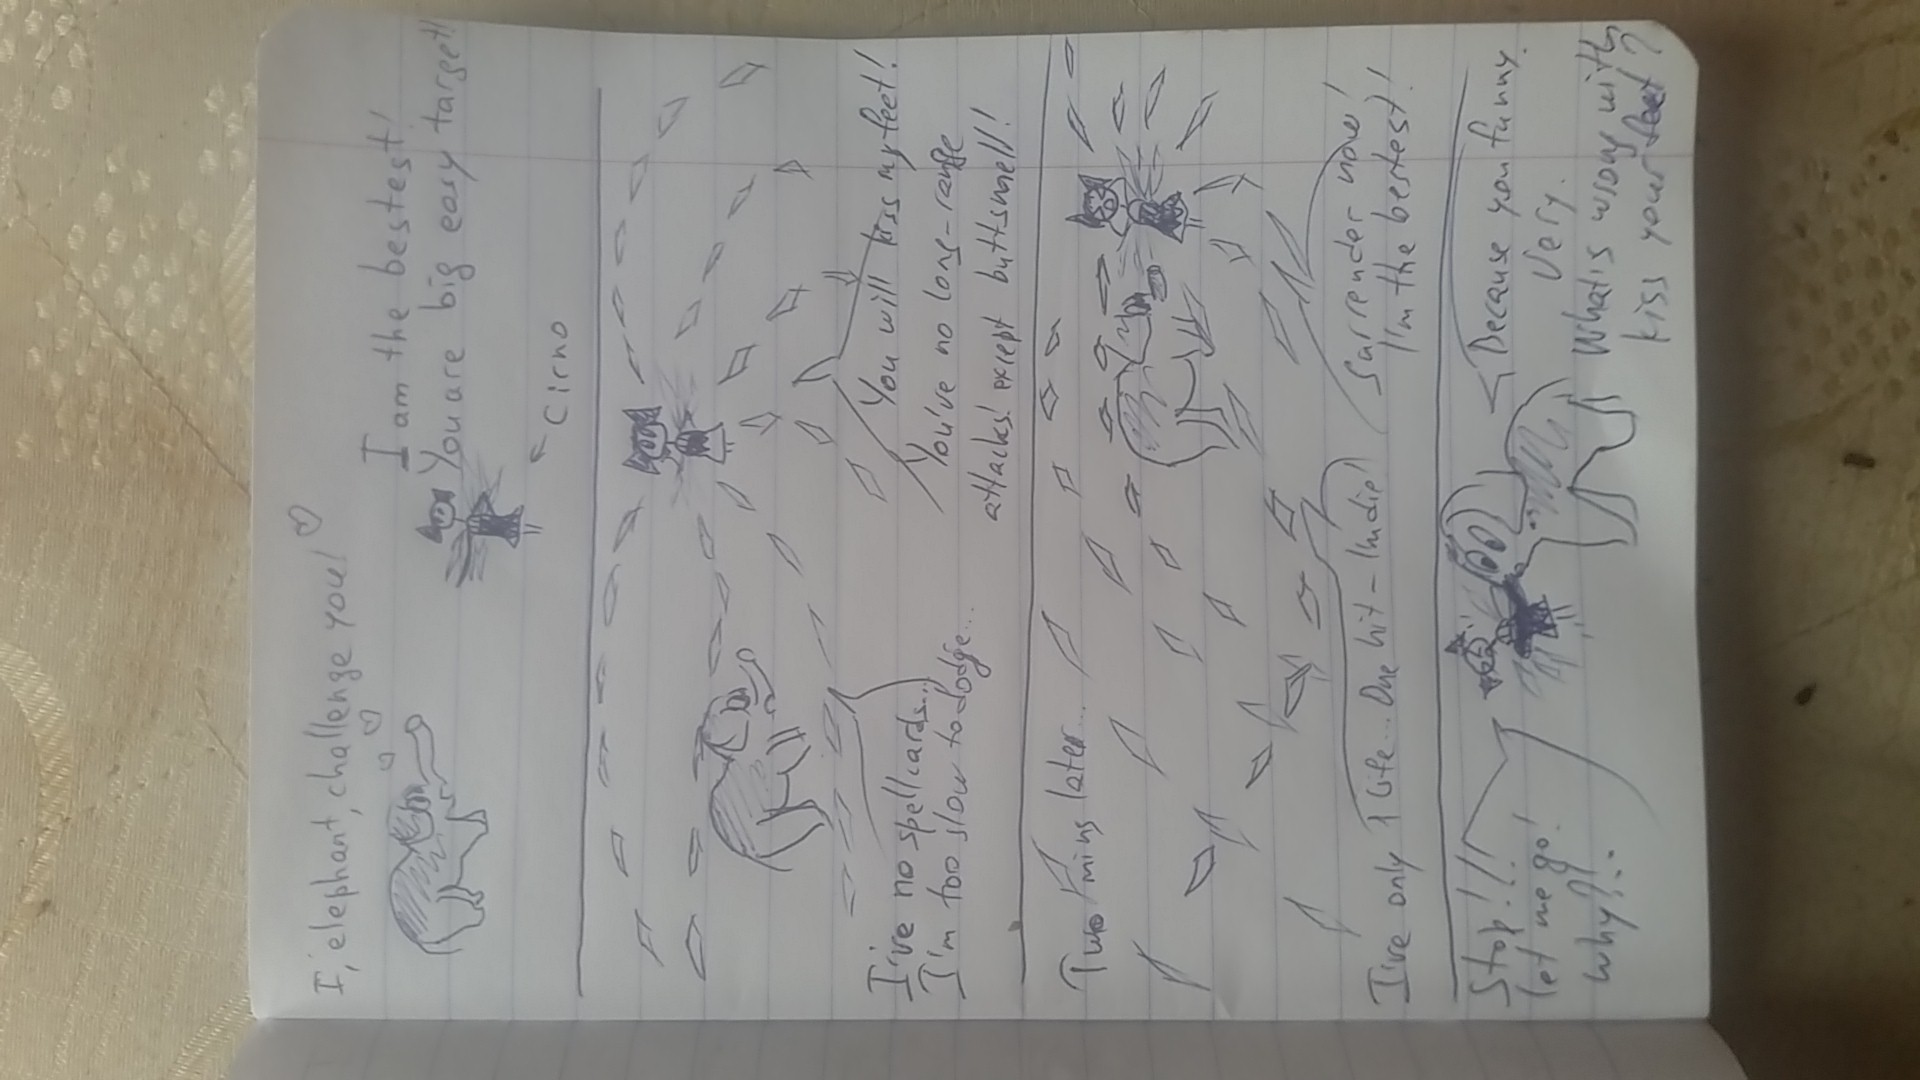 I, elephant, challenge you!
I am the bestest!
You are big easy target!
Cirno
I've no spellcards...
I'm too slow to dodge...
You will kiss my feet!
You've no long-range
attacks! except buttsmell!
Two mins later...
I've only 1 life... One hit - I'mdie!
Surrender now!
I'm the bestest!
Stop!!!
let me go!
why?!:
Because you funny.
Very.
What's wrong with
kiss your feet?